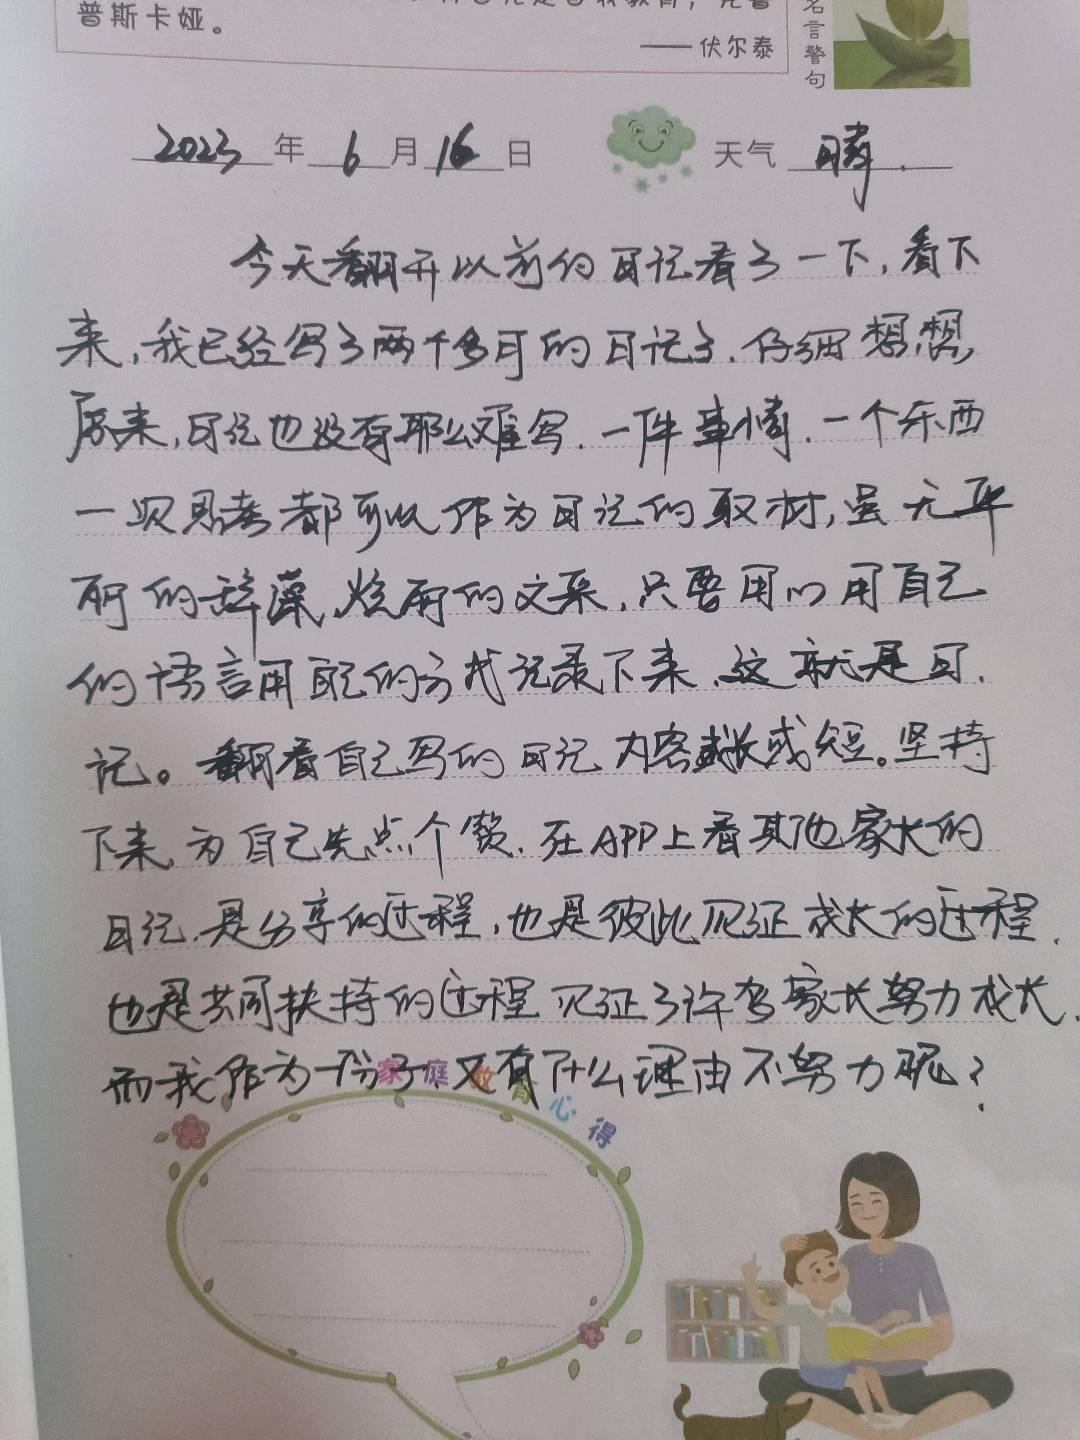 普斯卡娅。
——伏尔泰
名言警句
2023年6月16日 天气 晴.
今天翻开以前的日记看了一下,看下
来,我已经写了两千多可的日记了.仔细想想,
原来,日记也没有那么难写.一件事情.一个东西
一次思考都可以作为日记的取材,虽无华
丽的辞藻,炫丽的文采,只要用心用自己
的语言用自己的方式记录下来,这就是日.
记。翻看自己写的日记 内容或长或短。坚持
下来,为自己先点个赞.在APP上看其他家长的
日记.是分享的过程,也是彼此见证成长的过程.
也是共同扶持的过程 见证了许多家长努力成长.
而我作为一份子又有什么理由不努力呢?
家庭教育心得